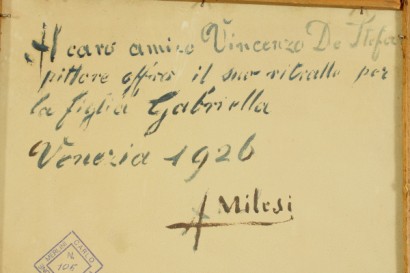 Al caro amico Vincenzo De Stefa
pittore offro il suo ritratto per
la figlia Gabriella
Venezia 1926
A Milesi
CARLO
N.
106